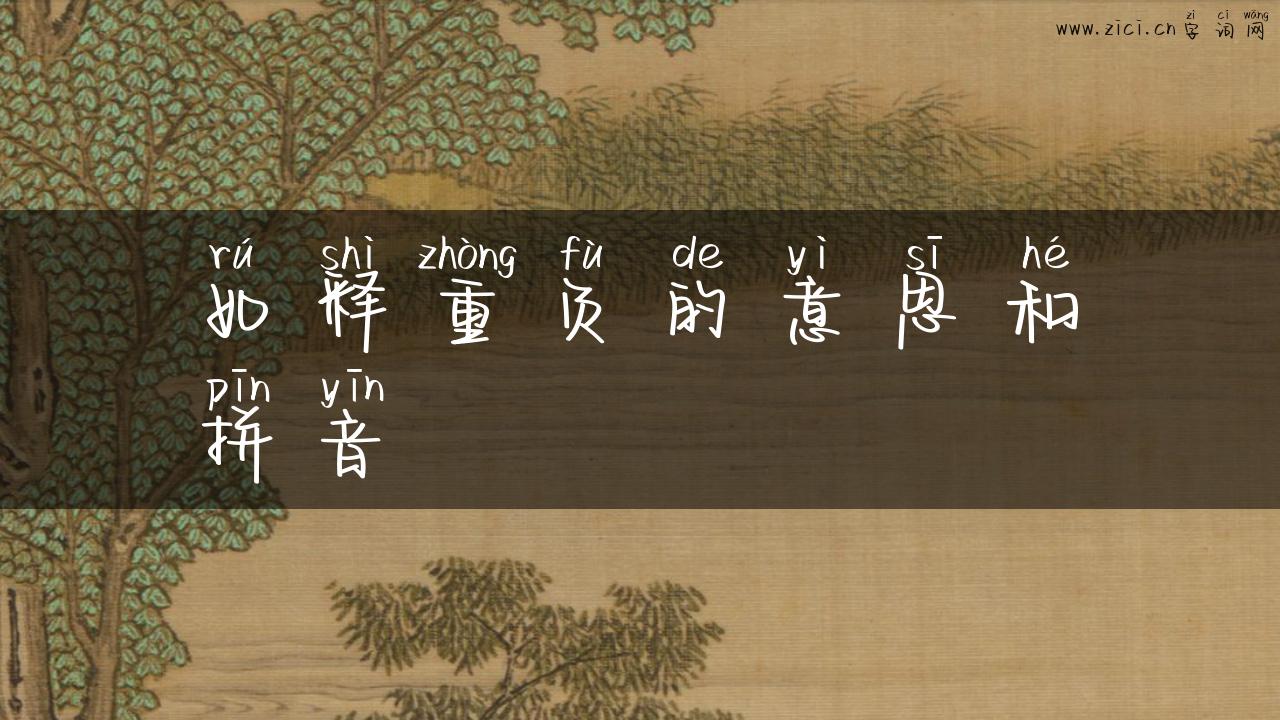 zì cí wǎng
www.zici.cn 字词网
rú shì zhòng fù de yì sī hé
如释重负的意思和
pīn yīn
拼音